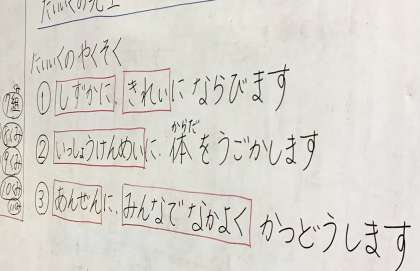 たいいくのやくそく
① しずかに、きれいにならびます
② いっしょうけんめいに、体をうごかします
からだ
③ あんぜんに、みんなでなかよくかつどうします